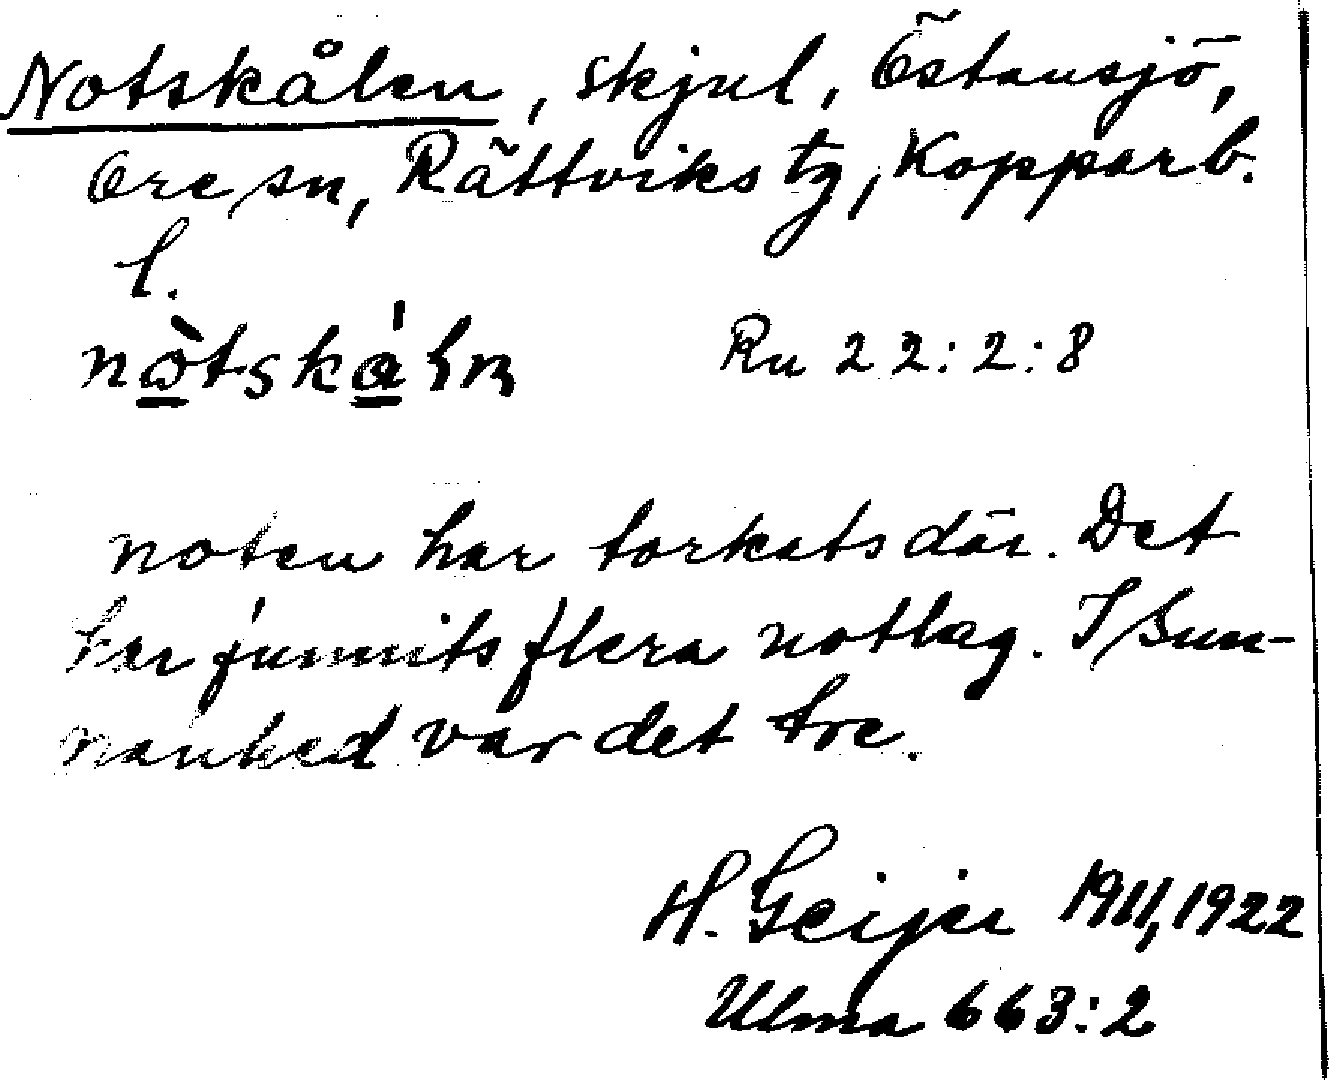 Notskålen, skjul, Östansjö,
Ore sn, Rättviks tg, Kopparb.
l.
Ru 22:2:8
noten har torkats där. Det
har funnits flera notlag. I Sun-
nanhed var det tre.
H. Geijer 1911, 1922
Ulma 663:2